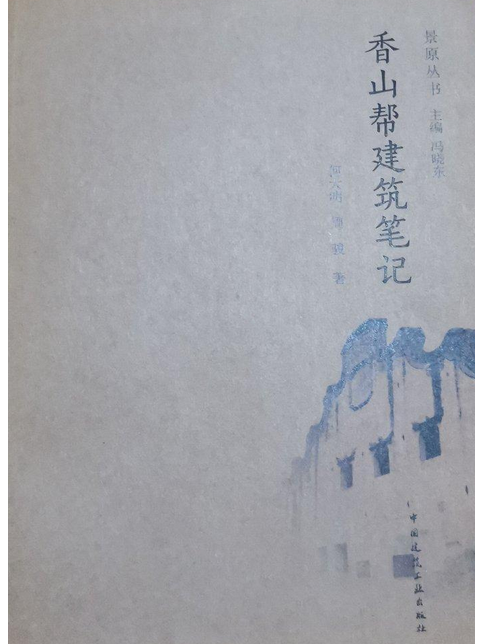 景原丛书 主编 冯晓东
香山帮建筑笔记
骏 著
中国建筑工业出版社